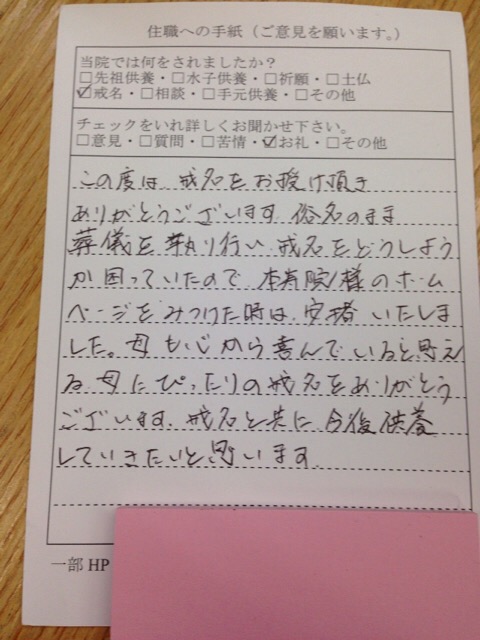 住職への手紙（ご意見を願います。）
当院では何をされましたか？
□先祖供養・□水子供養・□祈願・□土仏
☑戒名・□相談・□手元供養・□その他
チェックをいれ詳しくお聞かせ下さい。
□意見・□質問・□苦情・☑お礼・□その他
この度は、戒名をお授け頂き
ありがとうございます。俗名のまま
葬儀を執り行い 戒名をどうしよう
か困っていたので 本寿院様のホーム
ページをみつけた時は、安堵いたしま
した。母も心から喜んでいると思え
る母にぴったりの戒名をありがとう
ございます。戒名と共に 今後供養
していきたいと思います。
一部 HP